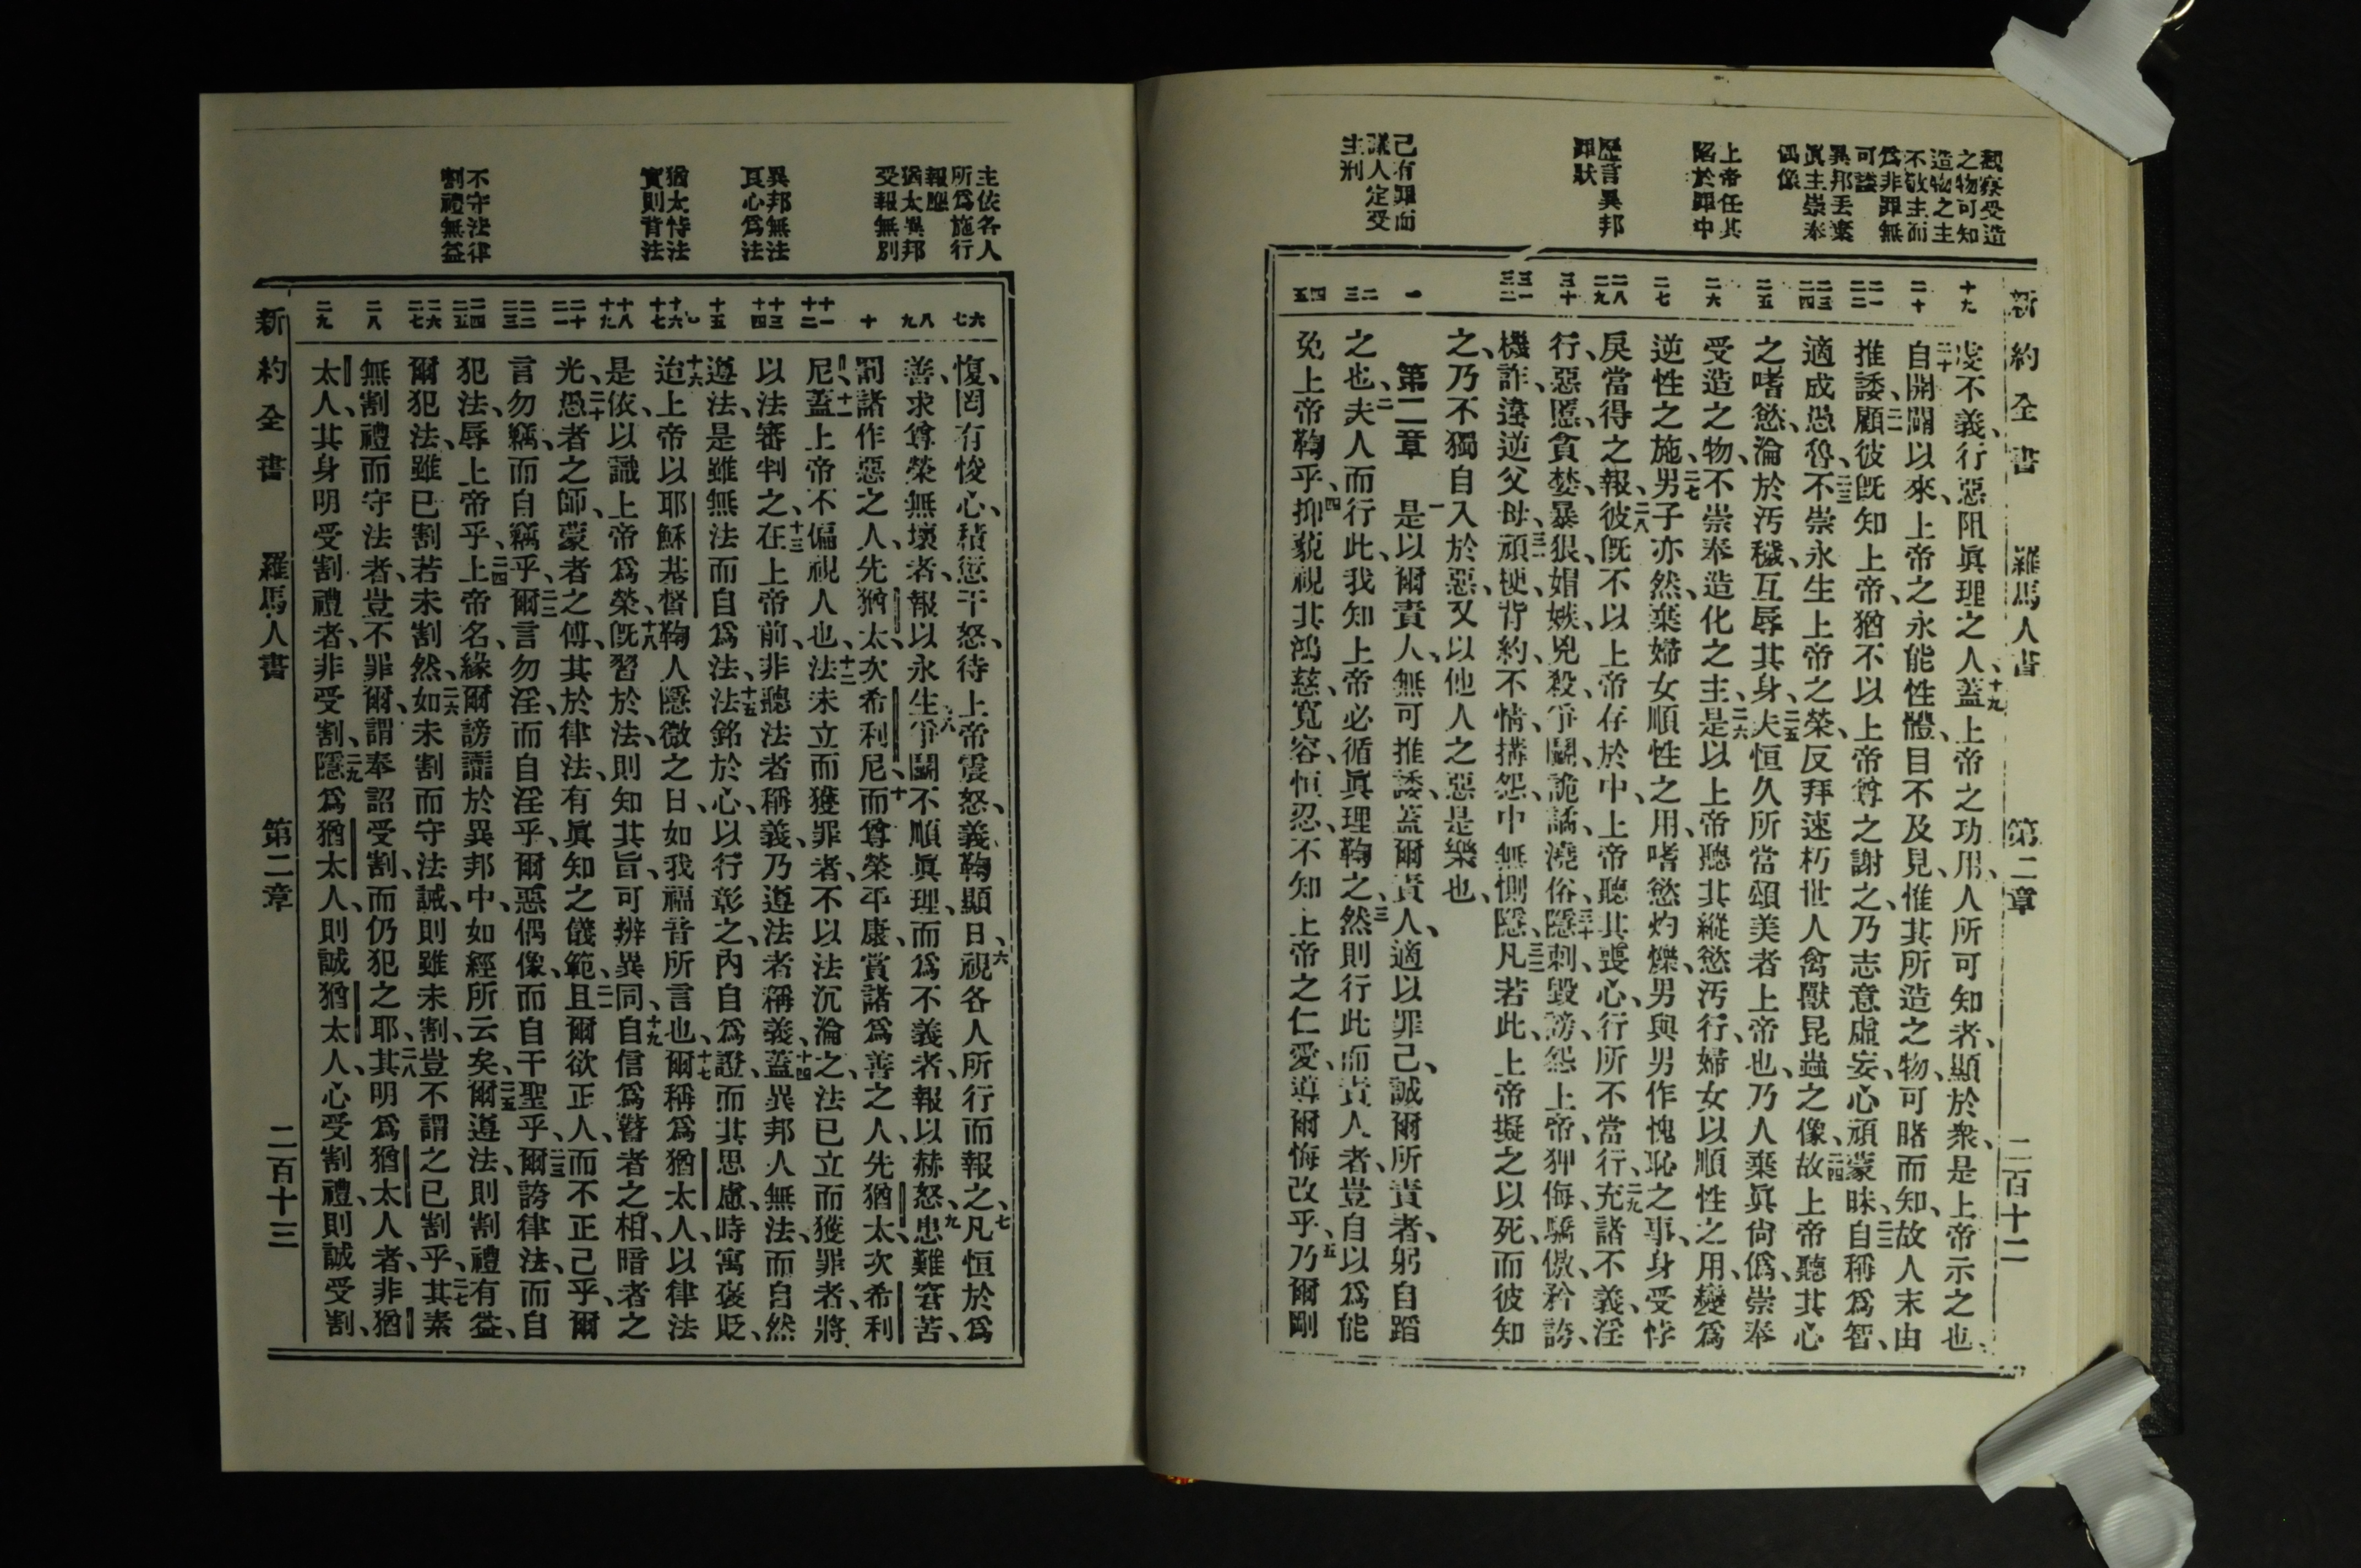 觀察受造
之物可知
造物之主
不敬主而
爲非罪無
可諉
異邦丟棄
眞主崇奉
偶像
上帝任其
陷於罪中
歷言異邦
罪狀
己有罪而
議人定受
主刑
新約全書 羅馬人書 第二章 二百十二
十九
二十
二一
二二
二三
二四
二五
二六
二七
二八
二九
三十
三一
三二
一
二
三
四
五
虔不義、行惡阻眞理之人、十九蓋上帝之功用、人所可知者、顯於衆、是上帝示之也、
二十自開闢以來、上帝之永能性體、目不及見、惟其所造之物、可睹而知、故人末由
推諉、二一顧彼旣知上帝、猶不以上帝尊之謝之、乃志意虛妄、心頑蒙昧、二二自稱爲智、
適成愚魯、二三不崇永生上帝之榮、反拜速朽世人禽獸昆蟲之像、二四故上帝聽其心
之嗜慾、淪於汚穢、互辱其身、二五夫恒久所當頌美者上帝也、乃人棄眞尙僞、崇奉
受造之物、不崇奉造化之主、二六是以上帝聽其縱慾汚行、婦女以順性之用、變爲
逆性之施、二七男子亦然、棄婦女順性之用、嗜慾灼爍、男與男作愧恥之事、身受悖
戾當得之報、二八彼旣不以上帝存於中、上帝聽其喪心、行所不當行、二九充諸不義、淫
行、惡慝、貪婪、暴狠、媢嫉、兇殺、爭鬬、詭譎、澆俗、三十隱刺、毀謗、怨上帝、狎侮、驕傲、矜誇、
機詐、違逆父母、三一頑梗、背約、不情、搆怨、中無惻隱、三二凡若此、上帝擬之以死、而彼知
之、乃不獨自入於惡、又以他人之惡是樂也、
第二章 一是以爾責人、無可推諉、蓋爾責人、適以罪己、誠爾所責者、躬自蹈
之也、二夫人而行此、我知上帝必循眞理鞫之、三然則行此而責人者、豈自以爲能
免上帝鞫乎、四抑藐視其鴻慈、寬容、恒忍、不知上帝之仁愛、導爾悔改乎、五乃爾剛
主依各人
所爲施行
報應
猶太異邦
受報無別
異邦無法
良心爲法
猶太恃法
實則背法
不守法律
割禮無益
六
七
八
九
十
十一
十二
十三
十四
十五
十六
十七
十八
十九
二十
二一
二二
二三
二四
二五
二六
二七
二八
二九
愎、罔有悛心、積愆干怒、待上帝震怒、義鞫顯日、六視各人所行而報之、七凡恒於爲
善、求尊榮無壞者、報以永生、八爭鬬不順眞理、而爲不義者、報以赫怒、九患難窘苦、
罰諸作惡之人、先猶太、次希利尼、十而尊榮平康、賞諸爲善之人、先猶太、次希利
尼、十一蓋上帝不偏視人也、十二法未立而獲罪者、不以法沉淪之、法已立而獲罪者、將
以法審判之、十三在上帝前、非聽法者稱義、乃遵法者稱義、十四蓋異邦人無法、而自然
遵法、是雖無法而自爲法、十五法銘於心、以行彰之、內自爲證、而其思慮、時寓褒貶、
十六迨上帝以耶穌基督鞫人隱微之日、如我福音所言也、十七爾稱爲猶太人、以律法
是依、以識上帝爲榮、十八旣習於法、則知其旨、可辨異同、十九自信爲瞽者之相、暗者之
光、二十愚者之師、蒙者之傅、其於律法、有眞知之儀範、二一且爾欲正人、而不正己乎、爾
言勿竊、而自竊乎、二二爾言勿淫、而自淫乎、爾惡偶像、而自干聖乎、二三爾誇律法、而自
犯法、辱上帝乎、二四上帝名、緣爾謗讟於異邦中、如經所云矣、二五爾遵法、則割禮有益、
爾犯法、雖已割、若未割然、二六如未割而守法誡、則雖未割、豈不謂之已割乎、二七其素
無割禮而守法者、豈不罪爾、謂奉詔受割、而仍犯之耶、二八其明爲猶太人者、非猶
太人、其身明受割禮者、非受割、二九隱爲猶太人、則誠猶太人、心受割禮、則誠受割、
新約全書 羅馬人書 第二章 二百十三